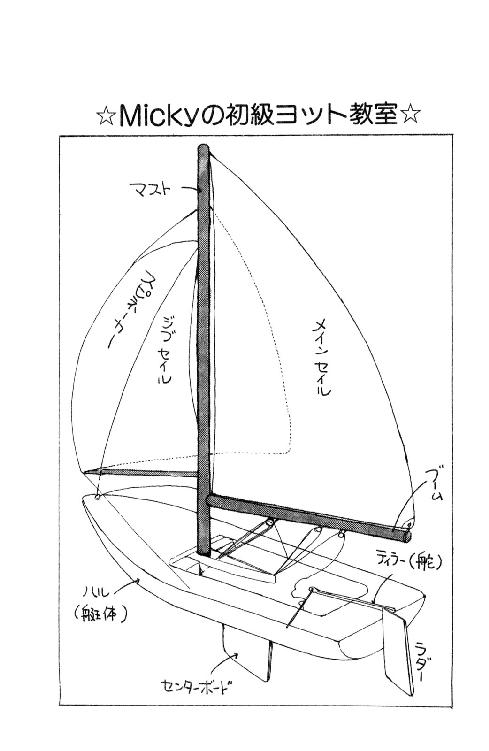 ☆Mickyの初級ヨット教室☆
マスト
スピネーカー
ジブセイル
メインセイル
ブーム
ティラー(舵)
ハル
(艇体)
ラダー
センターボード